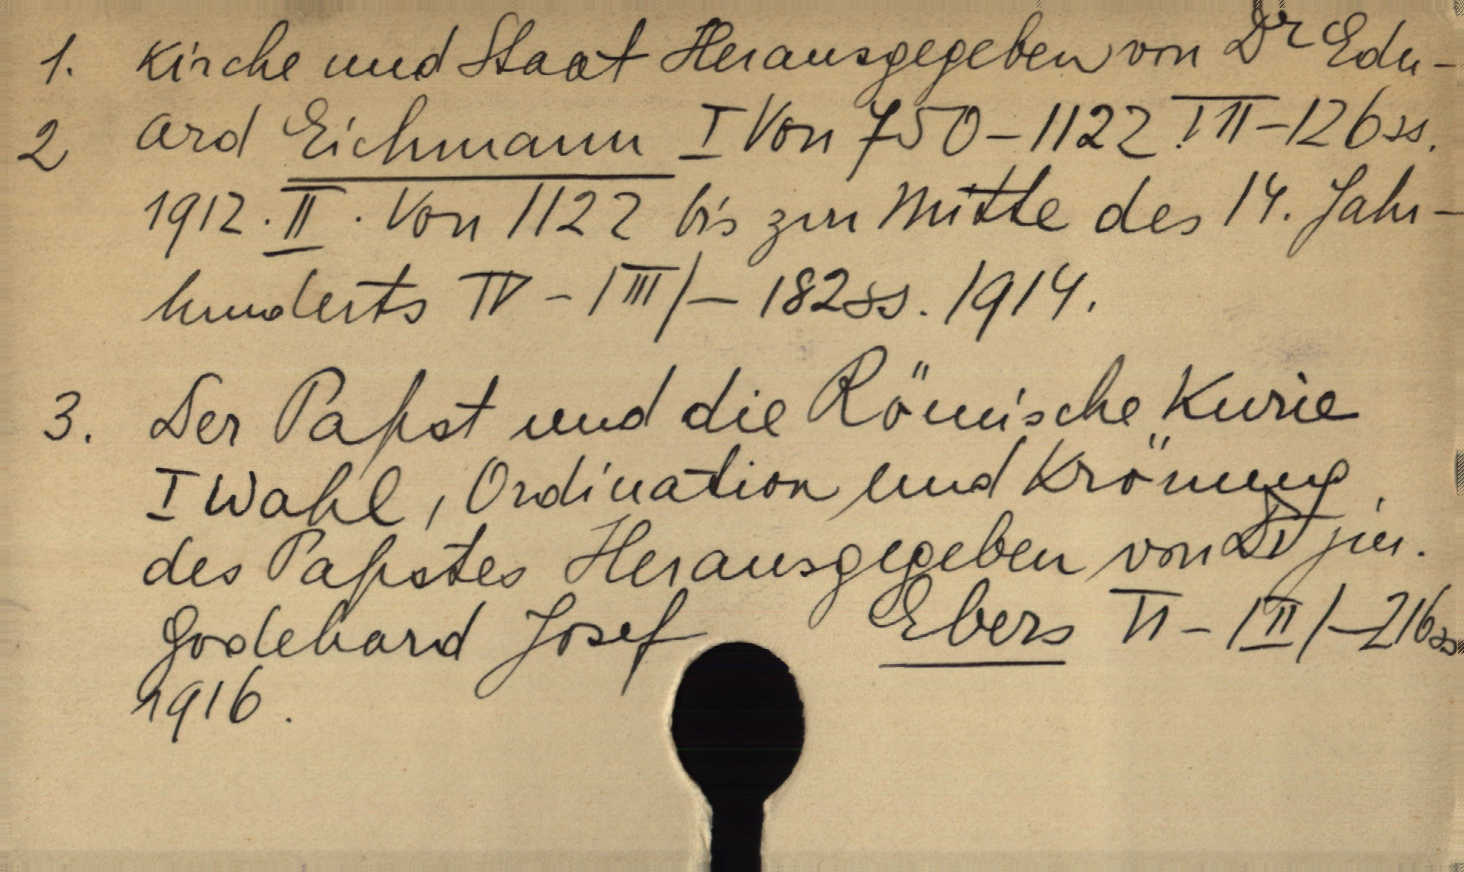 1. Kirche und Staat Herausgegeben von Dr Edu-
2 ard Eichmann I Von 750-1122. III-126ss.
1912. II. Von 1122 bis zur Mitte des 14. Jahr-
hunderts IV - /III/ - 182ss. 1914.
3. Der Papst und die Römische Kurie
I Wahl, Ordination und Krönung
des Papstes Herausgegeben von Dr jur.
Godehard Josef Ebers VI - /II/ - 216ss
1916.